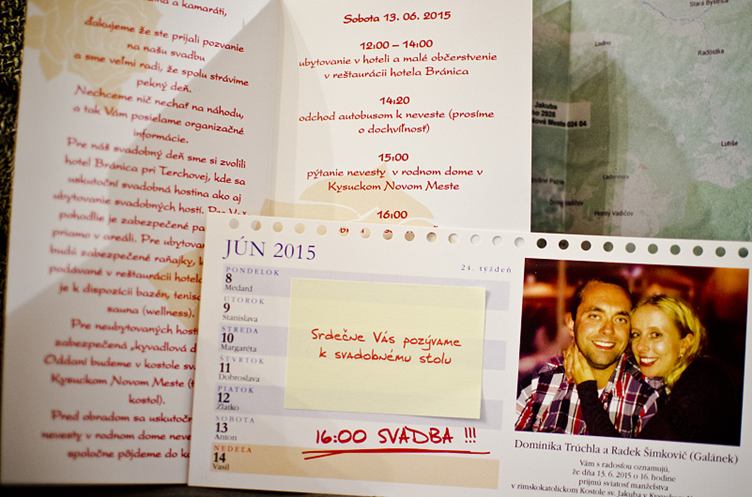 na a kamaráti,
ďakujeme že ste prijali pozvanie
na našu svadbu
a sme veľmi radi, že spolu strávime
pekný deň.
Nechceme nič nechať na náhodu,
a tak Vám posielame organizačné
informácie.
Pre náš svadobný deň sme si zvolili
hotel Bránica pri Terchovej, kde sa
uskutoční svadobná hostina ako aj
ubytovanie svadobných hostí. Pre
pohodlie je zabezpečené
priamo v areáli. Pre
budú zabezpečené raňajky,
podávané v reštaurácii
je k dispozícii bazén,
sauna (wellness).
Pre neubytovaných
zabezpečená „kyvadlová
Oddaní budeme v kostole
Kysuckom Novom Meste
kostol).
Pred obradom sa
nevesty v rodnom dome
spoločne pôjdeme do
Sobota 13. 06. 2015
12:00 – 14:00
ubytovanie v hoteli a malé občerstvenie
v reštaurácii hotela Bránica
14:20
odchod autobusom k neveste (prosíme
o dochvíľnosť)
15:00
pýtanie nevesty v rodnom dome v
Kysuckom Novom Meste
16:00
Stará Bystrica
Lodno
Radôstka
Jakuba
2028
Nové Mesto 024 04
Lutiše
Horný Vadičov
JÚN 2015
24. týždeň
PONDELOK
8
Medard
UTOROK
9
Stanislava
STREDA
10
Margaréta
ŠTVRTOK
11
Dobroslava
PIATOK
12
Zlatko
SOBOTA
13
Anton
NEDEĽA
14
Vasil
Srdečne Vás pozývame
k svadobnému stolu
16:00 SVADBA !!!
Dominika Trúchla a Radek Šimkovič (Galánek)
Vám s radosťou oznamujú,
že dňa 13. 6. 2015 o 16. hodine
prijmú sviatosť manželstva
v rímskokatolíckom Kostole sv. Jakuba v